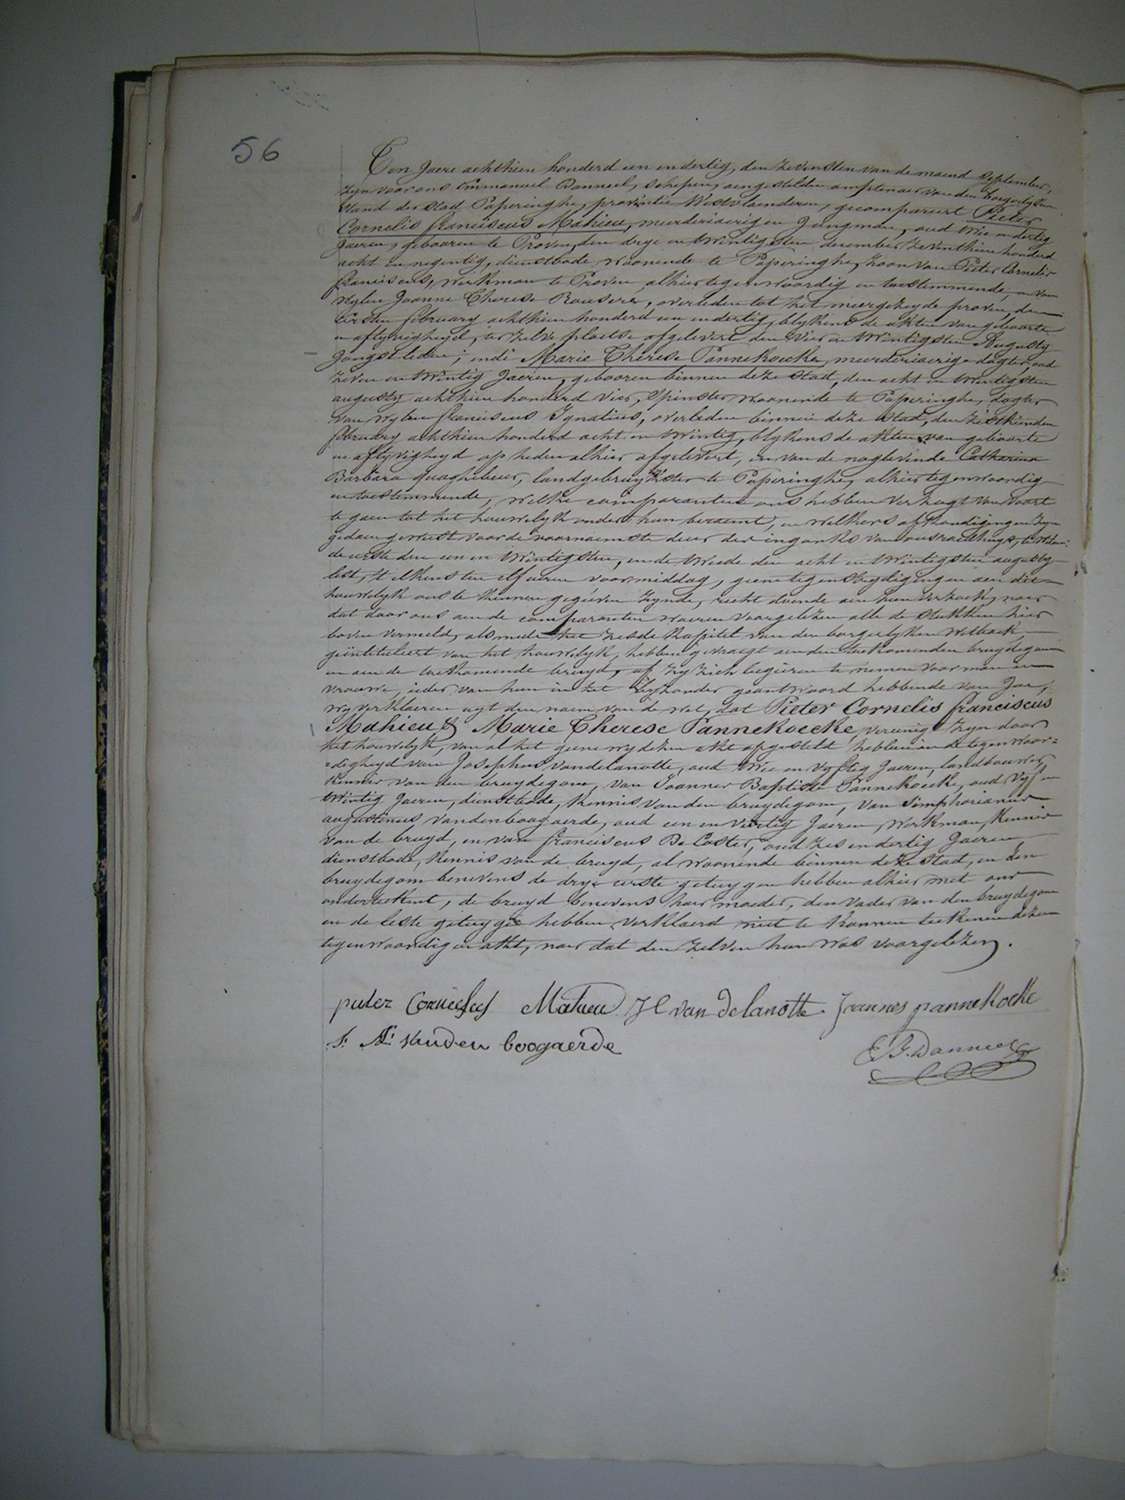 56
Ten Jaere achthien honderd een en dertig, den zevensten van de maend September,
zyn voor ons Emmanuel Danneel, schepen, aengestelden amptenaer van den borgerlyken
stand der stad Poperinghe, provintie Westvlaenderen, gecompareert Pieter
Cornelis franciscus Mahieu, meerderjaerigen Jongman, oud twee en dertig
Jaeren, gebooren te Proven, den drye en twintigsten december zeventhien honderd
acht en negentig, dienstbode woonende te Poperinghe, zoon van Pieter Cornelis
franciscus, werkman te Proven alhier tegenwoordig en toestemmende, en van
wylen Joanne Therese Rousere, overleden tot het meergezeyde proven, den
eersten february achthien honderd een en dertig, blykens de akten van geboorte
en aflyvigheyd, ter zelve plaetse afgelevert den vier en twintigsten Augusty
Jongstleden; ende Marie Therese Pannekoecke, meerderjaerige dogter, oud
zeven en twintig Jaeren, gebooren binnen deze stad, den acht en twintigsten
augusty achthien honderd vier, spinster woonende te Poperinghe, dogter
van wylen franciscus Ignatius, overleden binnen deze stad, den zesthienden
february achthien honderd acht en twintig, blykens de akten van geboorte
en aflyvigheyd op heden alhier afgelevert, en van de naglevende Catharina
Barbara Quaghebeur, landgebruykster te Poperinghe, alhier tegenwoordig
en toestemmende, welke comparanten ons hebben verzogt van voort
te gaen tot het houwelyk onder hun beraemt, en welkers afkondigingen zyn
gedaen geweest voor de voornaemste deur der ingank van ons raedhuys, te weten:
de eerste den een en twintigsten, en de tweede den acht en twintigsten augusty
lest, t'elkens ten elf uren voormiddag, geene tegenstrydigingen aen die
houwelyk ons te kennen gegeven zynde, recht doende aen hun verzoek, naer
dat door ons aen de comparanten waeren voorgelezen alle de stukken hier
boven vermeld, alsmede het zesde kapitel van den borgerlyken Wetboek
geintituleert van het houwelyk, hebben gevraegt aen den toekomenden bruydegom
en aen de toekomende bruyd, of zy zich begeeren te nemen voor man en
vrouwe, ieder van hun in het byzonder geantwoord hebbende van Jae,
wy verklaeren uyt den naem van de wet, dat Pieter Cornelis franciscus
Mahieu & Marie Therese Pannekoecke vereenigt zyn door
het houwelyk, van al het geene wy dezen akt opgesteld hebben in de tegenwoor-
digheyd van Josephus vandelanotte, oud twee en vyftig Jaeren, landbouwer,
kennis van den bruydegom, van Joannes Baptiste Pannekoecke, oud vyf en
twintig Jaeren, dienstbode, kennis van den bruydegom, van Simphorianus
augustinus vandenboogaerde, oud een en veertig Jaeren, Werkman, kennis
van de bruyd, en van franciscus De Coster, oud zes en dertig Jaeren,
dienstbode, kennis van de bruyd, al woonende binnen deze stad, en den
bruydegom benevens de drye eerste getuygen hebben alhier met ons
onderteekent, de bruyd benevens haer moeder, den vader van den bruydegom
en de leste getuyge hebben verklaerd niet te konnen teekenen dezen
tegenwoordigen akt, naer dat den zelven hun was voorgelezen.
pieter Cornelis Mahieu J vandelanotte Joannes pannekoeke
S. A. vanden boogaerde
E J. Danneel